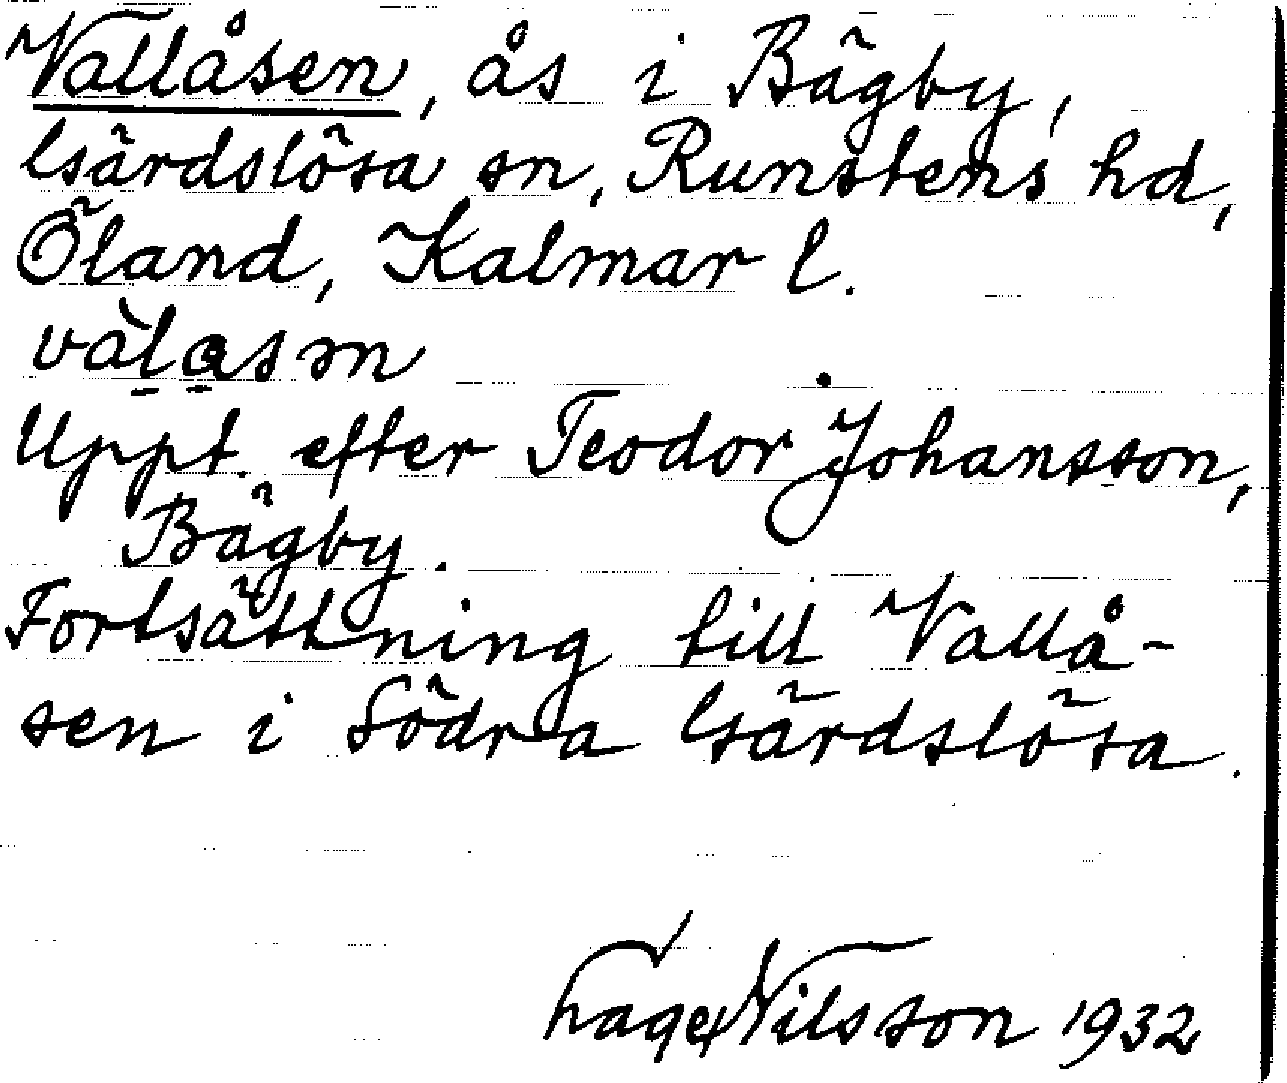 Vallåsen, ås i Bägby,
Gärdslösa sn, Runstens hd,
Öland, Kalmar l.
Uppt. efter Teodor Johansson,
Bägby.
Fortsättning till Vallå-
sen i Södra Gärdslösa.
Hage Nilsson 1932